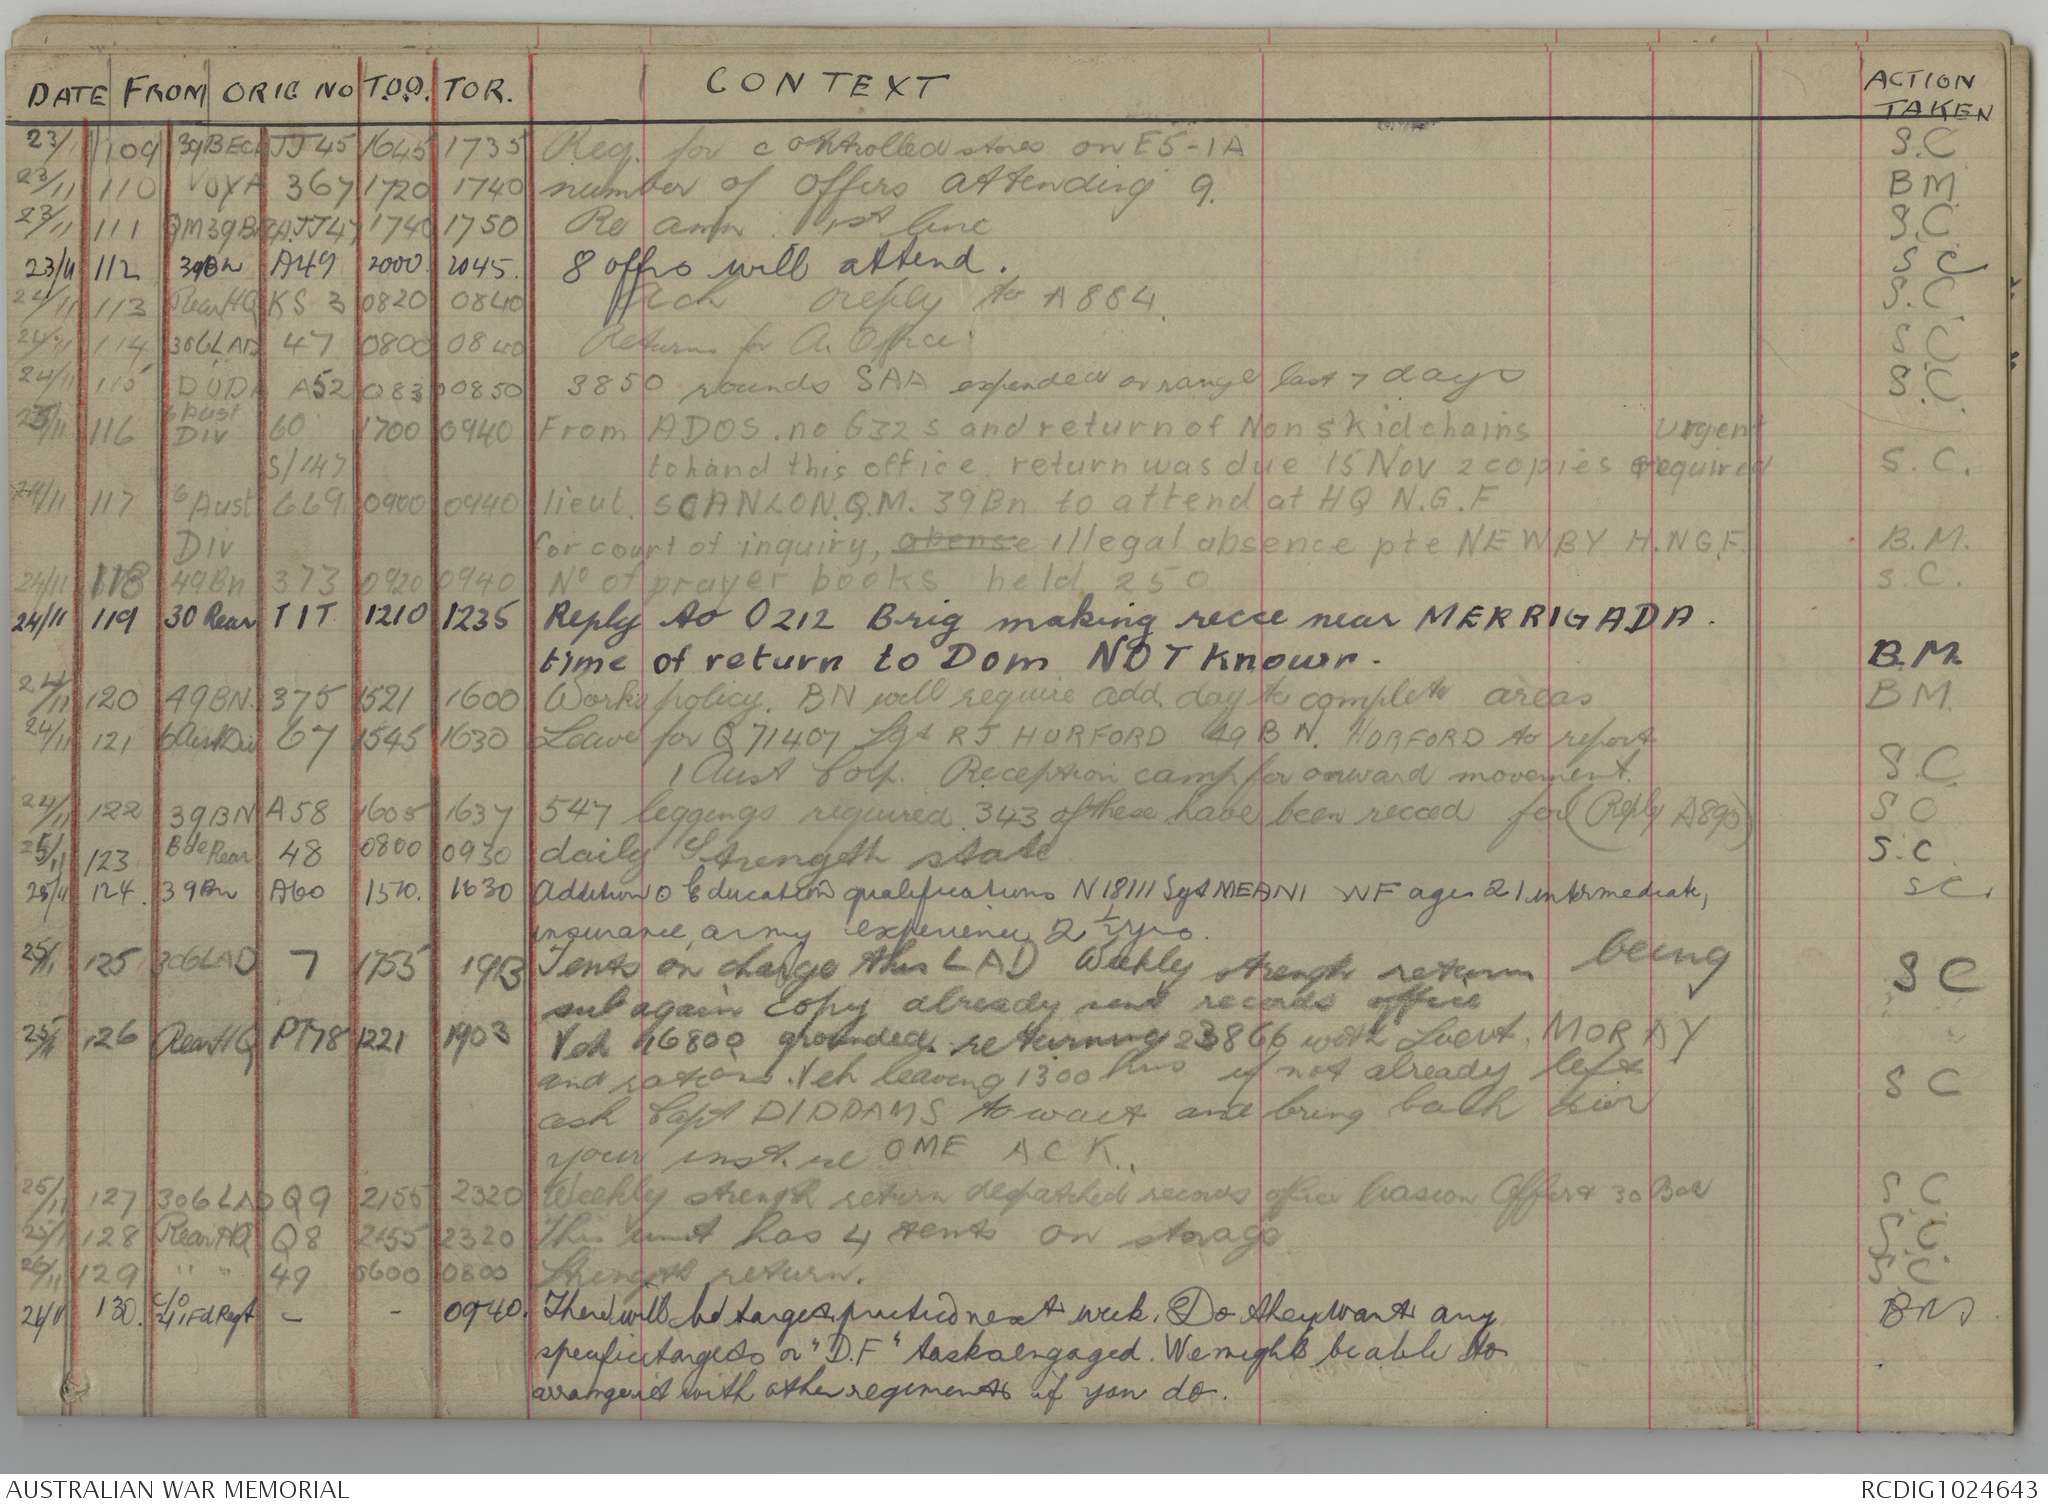 DATE FROM ORIG NO T.O.O. TOR. CONTEXT ACTION TAKEN
23/11 109 39BEC JJ45 1645 1735 Req. for controlled stores on E5-1A S.C
23/11 110 VOYA 367 1720 1740 number of offers attending 9. BM.
23/11 111 QM39B JJ47 1740 1750 Re amn. 1st line S.C
23/11 112 39Bn A49 2000. 2045. 8 offrs will attend. S C
24/11 113 Rear HQ KS 3 0820 0840 reply to A884. S.C.
24/11 114 306LAD 47 0800 0840 Returns for A. Office. S C
24/11 115 DUDA A52 0830 0850 3850 rounds SAA expended on range last 7 days S.C.
23/11 116 6 Aust Div 60 1700 0940 From ADOS. no G32s and return of Non skid chains urgent
S/147 to hand this office. return was due 15 Nov 2 copies required S.C.
24/11 117 6 Aust 669 0900 0940 lieut. SCANLON.Q.M. 39Bn to attend at HQ N.G.F
Div for court of inquiry, abense illegal absence pte NEWBY H.NGF. B.M.
24/11 118 49Bn 373 0920 0940 No of prayer books held 250 S.C.
24/11 119 30 Rear TIT 1210 1235 Reply to O212 Brig making recce near MERRIGADA.
time of return to Dom NOT Known. B.M.
24/11 120 49BN. 375 1521 1600 Works policy. BN will require add. day to complete areas BM.
24/11 121 6AustDiv 67 1545 1630 Leave for Q71407 Sgt RJ HURFORD 49 BN. HORFORD to report
1 Aust Corp. Reception camp for onward movement. S.C.
24/11 122 39BN A58 1605 1637 547 leggings required 343 of these have been recced for (Reply A895) S C
25/11 123 Bde Rear 48 0800 0930 daily Strength state S.C.
25/11 124. 39Bn A60 1510. 1630 Additions Education qualifications N18111 Sgt MEANI WF age 21 intermediate, SC.
insurance, army experience 2½ yrs.
25/11 125 306LAD 7 1755 1913 Tents on charge this LAD Weekly strength return being S C
sub again copy already sent records office
25/11 126 RearHQ PT78 1221 1903 Veh 16800 grounded. returning 23866 with Lieut. MORAY
and rations. Veh leaving 1300 hrs if not already left S C
ask Capt DIDDAMS to wait and bring back
your inst. re OME ACK..
25/11 127 306LAD Q9 2155 2320 Weekly strength return despatched records office liasion Offer 30 Bde S C
25/11 128 RearHQ Q8 2155 2320 This unit has 4 tents on storage S.C.
26/11 129 " " 49 0600 0800 Strength return. S.C
26/11 130. C/O 4 Fd Regt - - 0940. There will be target practice next week. Do they want any BM
specific targets or "D.F" tasks engaged. We might be able to
arrange it with other regiments if you do.
AUSTRALIAN WAR MEMORIAL RCDIG1024643